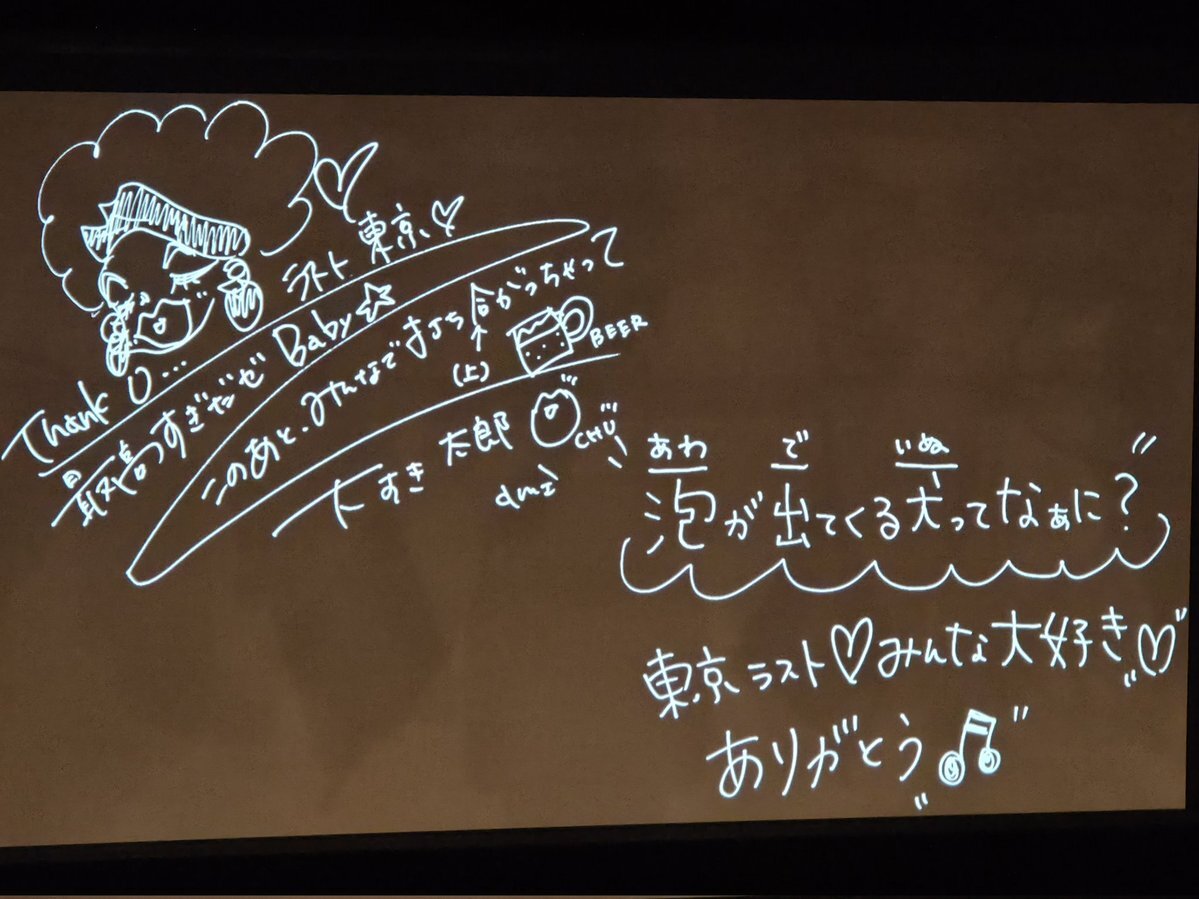 ラスト東京♡
Thank U...
最高っすぎだぜ Baby☆
このあと、みんなで打ち合がっちゃって
(上)
BEER
大すき 太郎
CHU
ami
あわ で いぬ
泡が出てくる犬ってなぁに?
東京ラスト♡みんな大好き♡
ありがとう♫